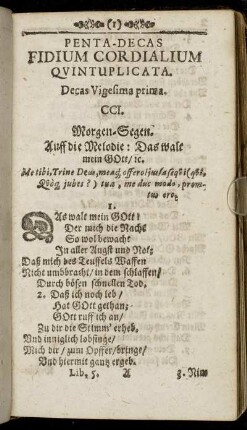 (1)
PENTA-DECAS
FIDIUM CORDIALIUM
QVINTUPLICATA.
Decas Vigesima prima.
CCI.
Morgen-Segen.
Auff die Melodie: Das walt
mein GOtt/ ıc.
Me tibi, Trine Deus, meaq; offero jussa sequi (qßi,
jubes?) tua, me duc modo, prom-
tus ero;
1.
DAs walt mein GOtt!
Der mich die Nacht
So wol bewacht
In aller Angst und Noht;
Daß mich des Teufels Waffen
Nicht umbbracht/ in dem schlaffen/
Durch bösen schnellen Tod.
2. Daß ich noch leb/
Hat GOtt gethan;
GOtt ruff ich an/
Zu dir die Stimm' erheb,
Und inniglich lobsinge/
Mich dir/ zum Opffer/ bringe/
Und hiermit gantz ergeb.
Lib. 5. A 3. Nim